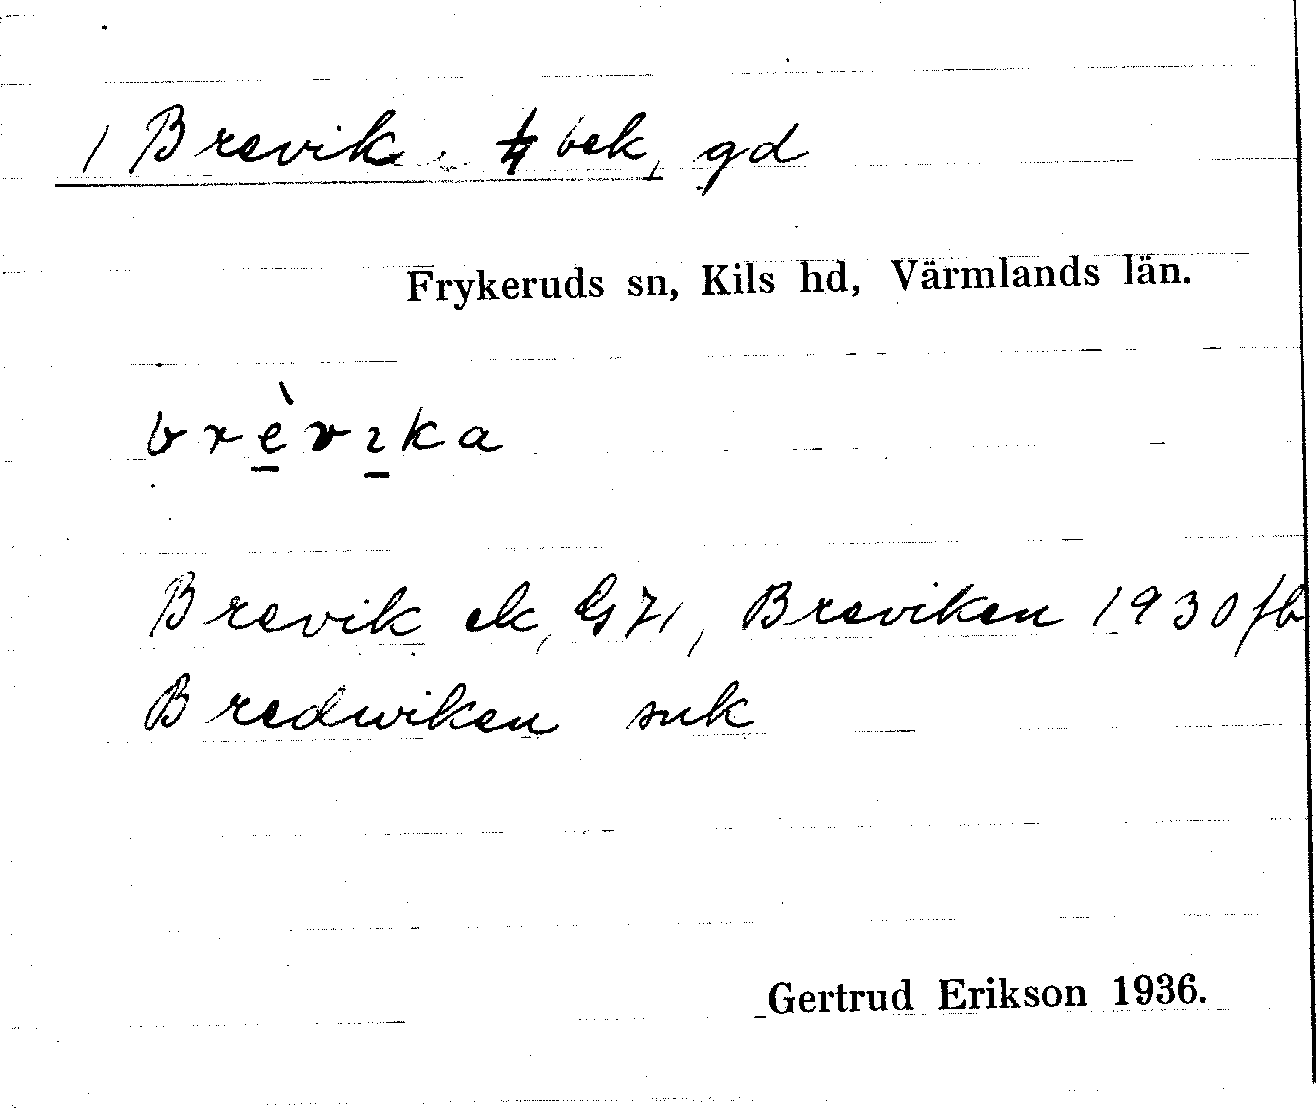 1 Brevik bek, gd
Frykeruds sn, Kils hd, Värmlands län.
brèvıka
Brevik ek, G 71, Breviken 1930 fb
Bredwiken suk
Gertrud Erikson 1936.